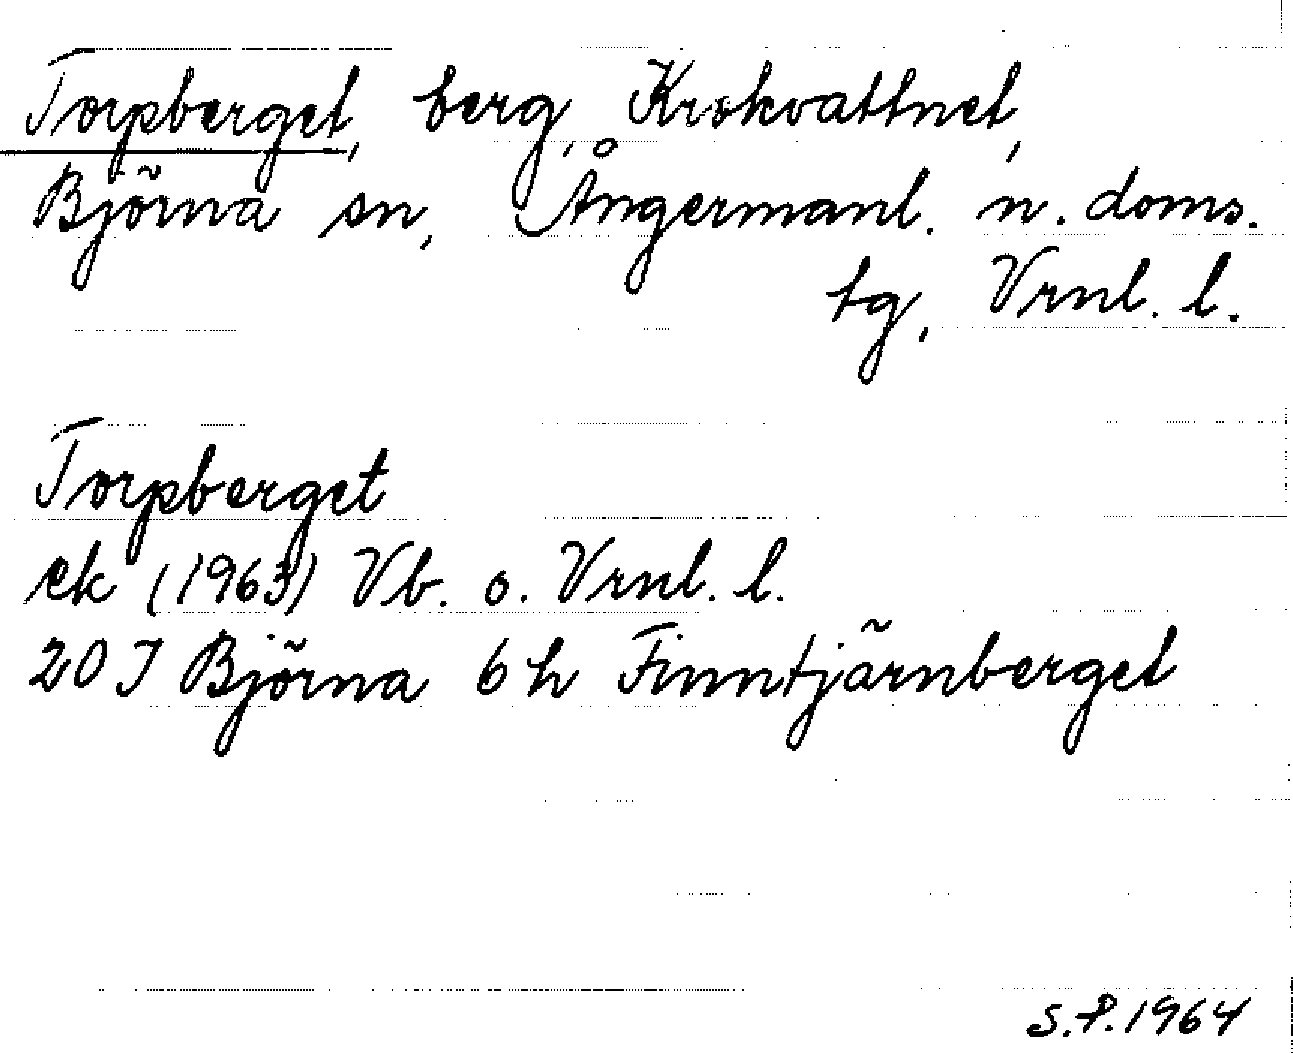 Torpberget, berg, Krokvattnet,
Björna sn, Ångermanl. n. doms.
tg, Vrnl. l.
Torpberget
ek (1963) Vb. o. Vrnl. l.
20 J Björna 6 h Finntjärnberget
S.P. 1964